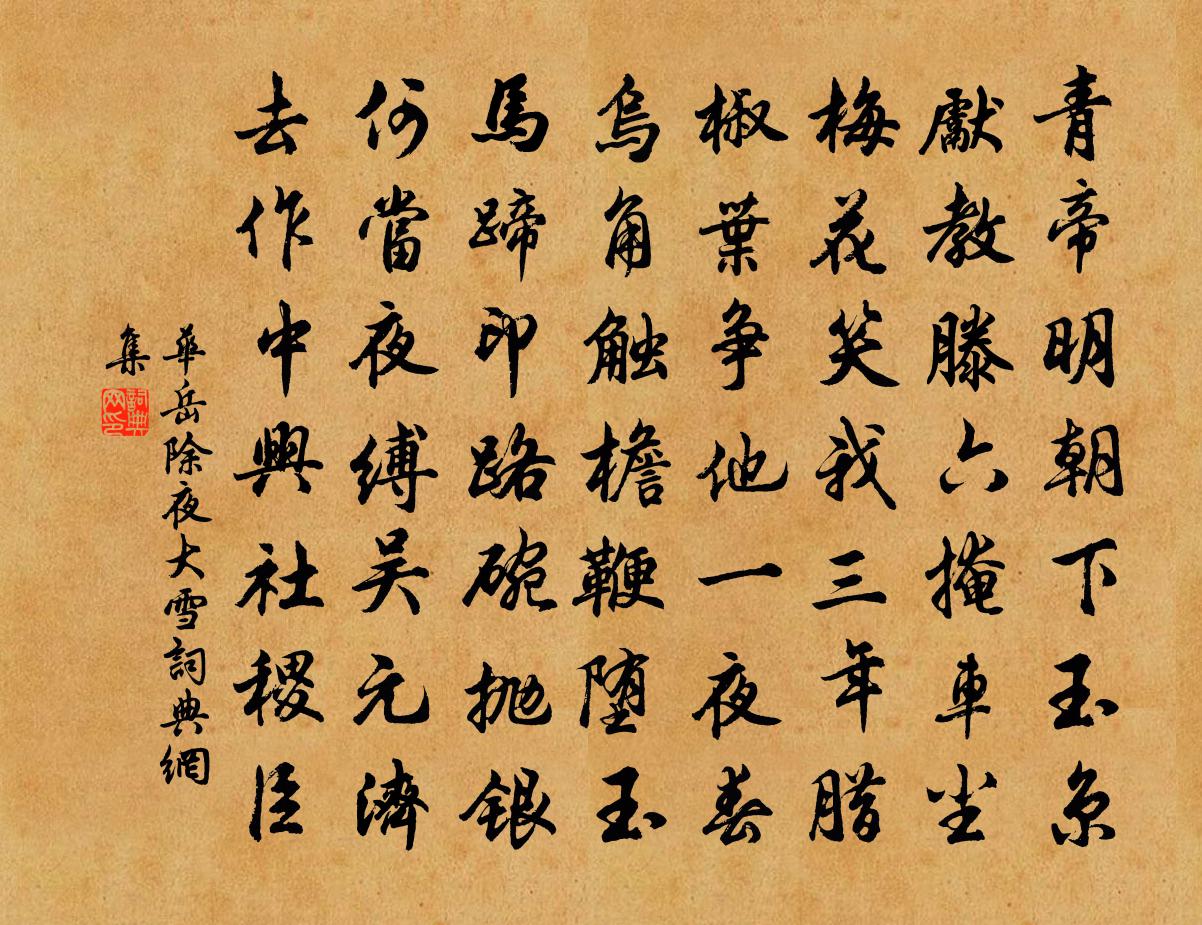 青帝明朝下玉京
獻教滕六掩車塵
梅花笑我三年腊
椒葉爭他一夜春
烏角触檐鞭堕玉
馬蹄印路碗抛銀
何當夜縛吴元濟
去作中興社稷臣
華岳除夜大雪詞典網
集
詞典网印